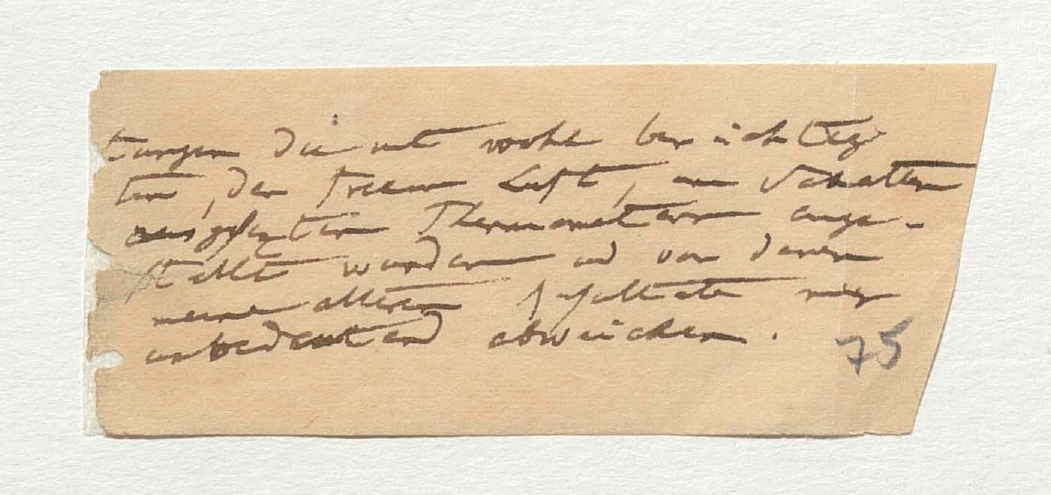 tungen die mit wohl berichtig
ten, der freien Luft, im Schatten
ausgesezten Thermometern ange-
stellt wurden und von denen
meine älteren Resultate nur
unbedeutend abweichen.
75